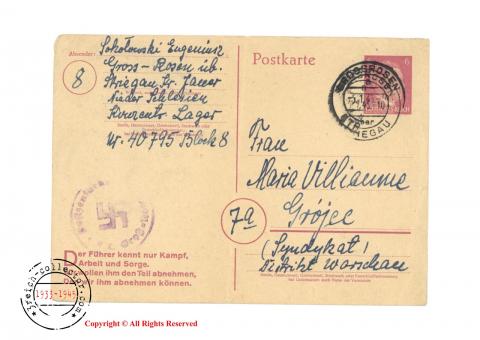 Absender:
Sokołowski Eugeniusz
Gross-Rosen üb.
Striegau Kr. Jauer
Nieder Schlesien
Lager
Nr. 40795 Block 8
8
Postkarte
6
GROSSROSEN
über
Frau
Maria Villiaume
Grójec
(Syndykat)
Distrikt Warschau
7a
Der Führer kennt nur Kampf,
Arbeit und Sorge.
wollen ihm den Teil abnehmen,
ihm abnehmen können.
3reich-collector.com
1933-1945
Copyright © All Rights Reserved